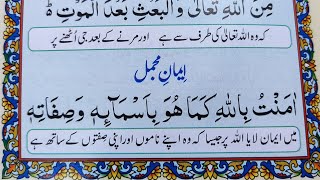 مِنَ اللّٰهِ تَعَالٰى وَالْبَعْثِ بَعْدَ الْمَوْتِ ط
کہ وہ اللہ تعالیٰ کی طرف سے ہے اور مرنے کے بعد جی اُٹھنے پر
اِیمانِ مجمل
اٰمَنْتُ بِاللّٰهِ كَمَا هُوَ بِاَسْمَآئِهٖ وَصِفَاتِهٖ
میں ایمان لایا اللہ پر جیسا کہ وہ اپنے ناموں اور اپنی صفتوں کے ساتھ ہے